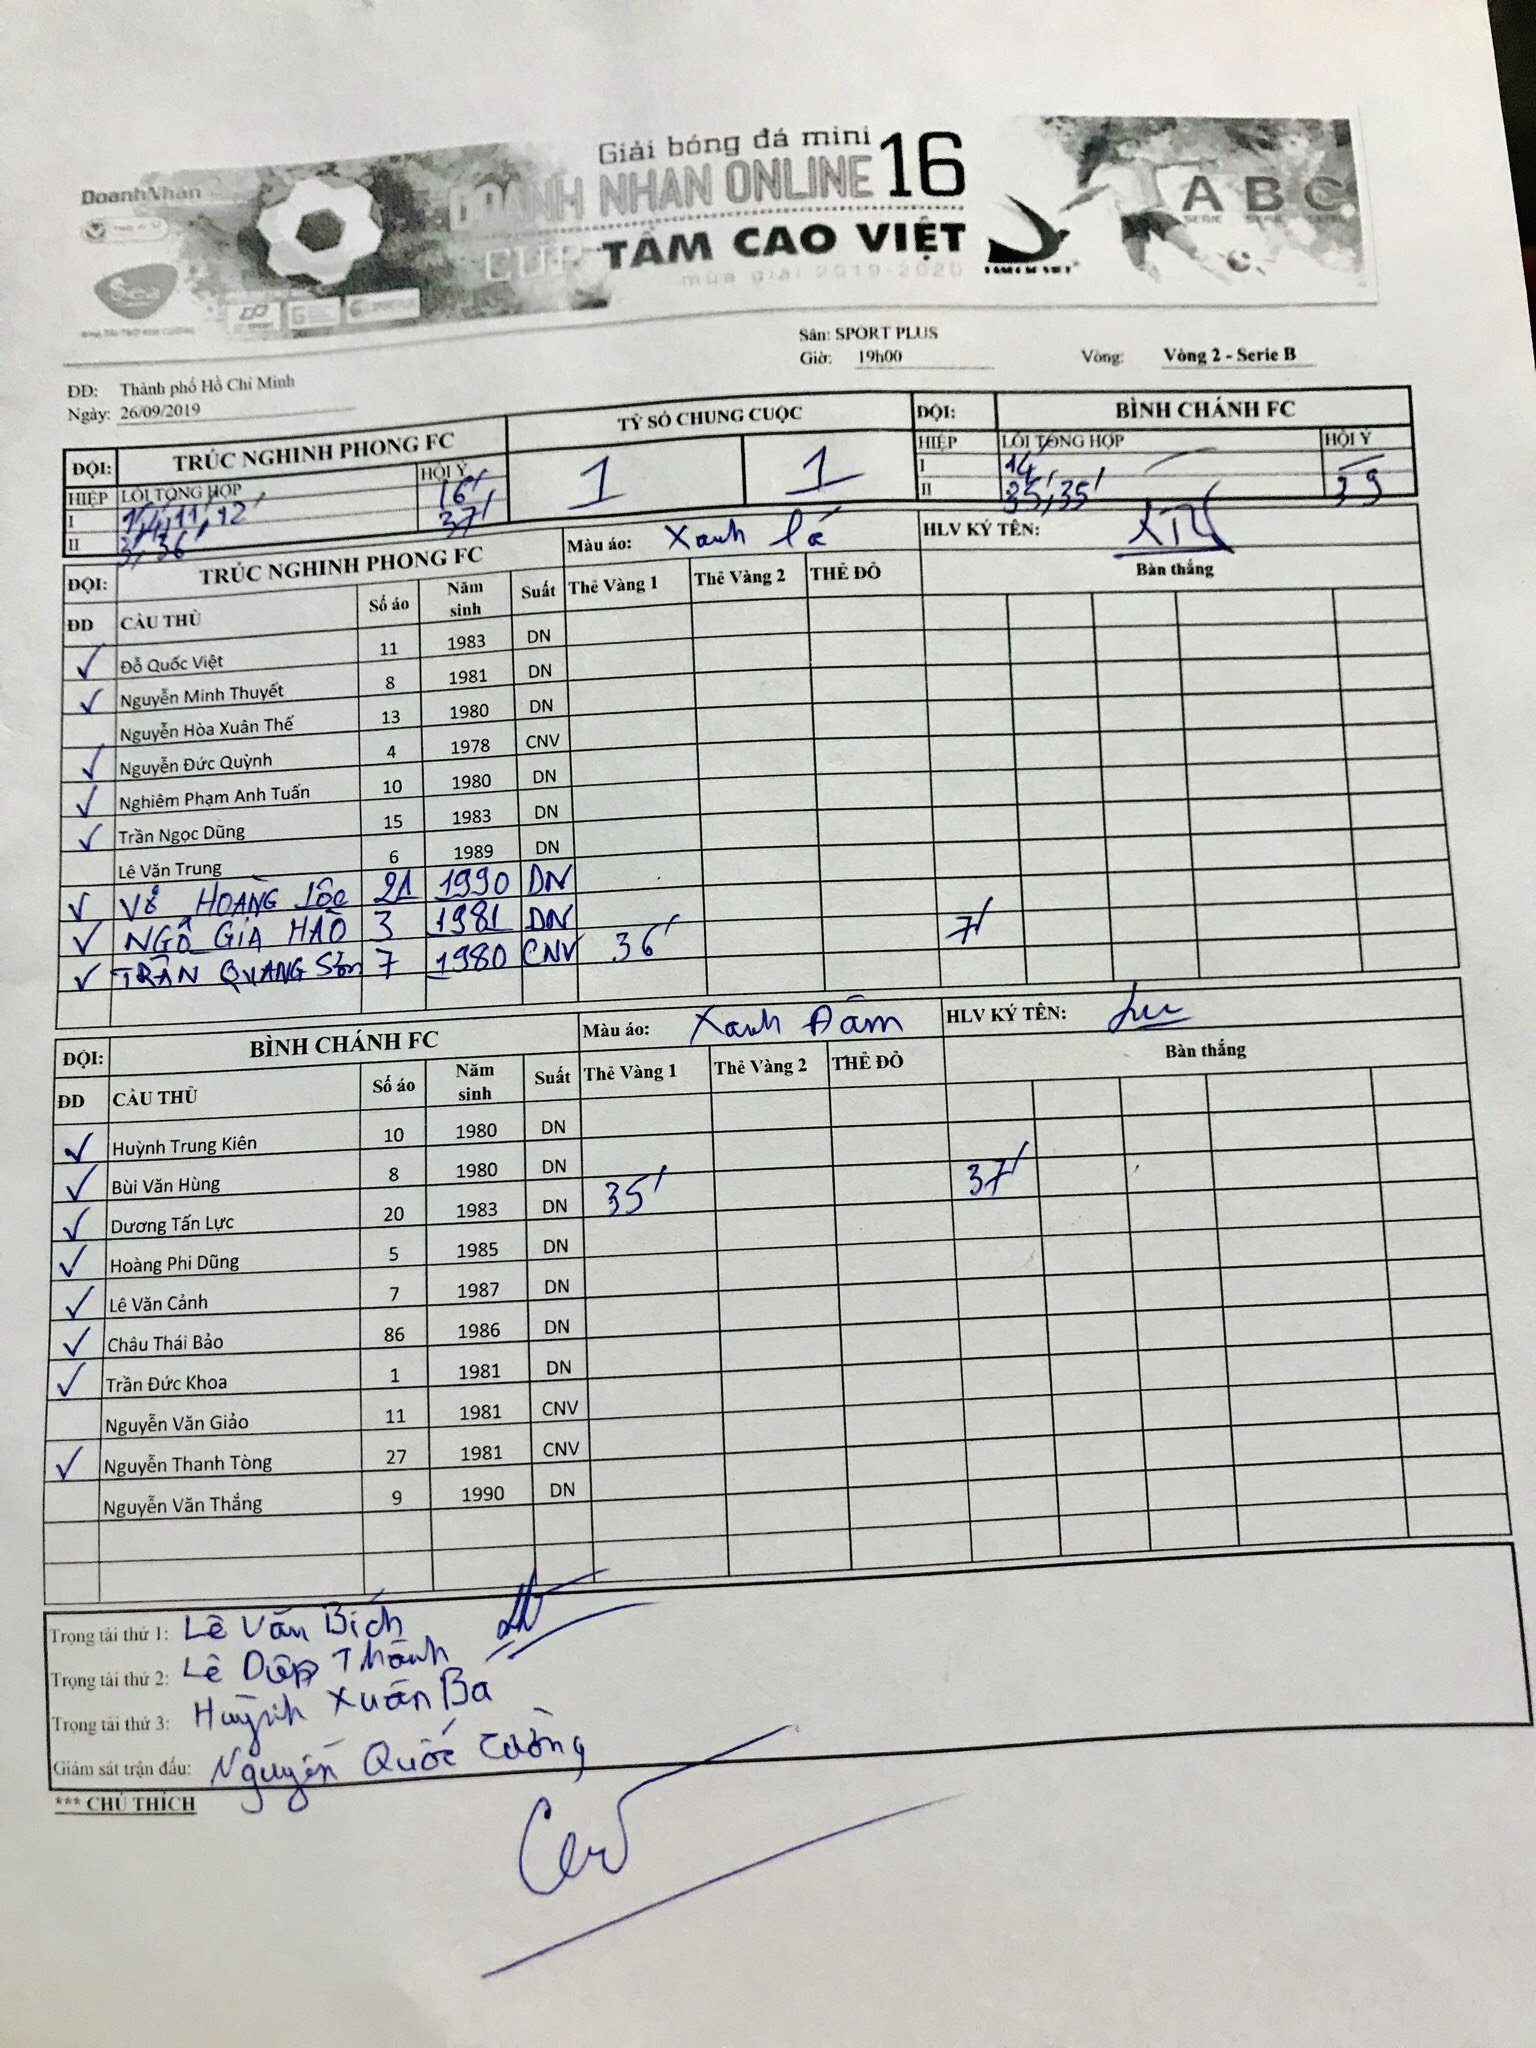 Giải bóng đá mini
DoanhNhân
DOANH NHAN ONLINE 16
CUP TẦM CAO VIỆT
mùa giải 2019-2020
A B C
SERIE SERIE SERIE
Sân: SPORT PLUS
Giờ: 19h00 Vòng: Vòng 2 - Serie B
ĐD: Thành phố Hồ Chí Minh
Ngày: 26/09/2019
ĐỘI: TRÚC NGHINH PHONG FC TỶ SỐ CHUNG CUỘC ĐỘI: BÌNH CHÁNH FC
HIỆP LỖI TỔNG HỢP HỘI Ý 1 1 HIỆP LỖI TỔNG HỢP HỘI Ý
I 16' I 14'
II 3', 36' 37' II 35', 35' 39
ĐỘI: TRÚC NGHINH PHONG FC Màu áo: Xanh lá HLV KÝ TÊN:
ĐD CẦU THỦ Số áo Năm sinh Suất Thẻ Vàng 1 Thẻ Vàng 2 THẺ ĐỎ Bàn thắng
✓ Đỗ Quốc Việt 11 1983 DN
✓ Nguyễn Minh Thuyết 8 1981 DN
Nguyễn Hòa Xuân Thế 13 1980 DN
✓ Nguyễn Đức Quỳnh 4 1978 CNV
✓ Nghiêm Phạm Anh Tuấn 10 1980 DN
✓ Trần Ngọc Dũng 15 1983 DN
Lê Văn Trung 6 1989 DN
✓ VÕ HOÀNG LỘC 21 1990 DN
✓ NGÔ GIA HÀO 3 1981 DN 7'
✓ TRẦN QUANG Sơn 7 1980 CNV 36'
ĐỘI: BÌNH CHÁNH FC Màu áo: Xanh Đậm HLV KÝ TÊN:
ĐD CẦU THỦ Số áo Năm sinh Suất Thẻ Vàng 1 Thẻ Vàng 2 THẺ ĐỎ Bàn thắng
✓ Huỳnh Trung Kiên 10 1980 DN
✓ Bùi Văn Hùng 8 1980 DN 37'
✓ Dương Tấn Lực 20 1983 DN 35'
✓ Hoàng Phi Dũng 5 1985 DN
✓ Lê Văn Cảnh 7 1987 DN
✓ Châu Thái Bảo 86 1986 DN
✓ Trần Đức Khoa 1 1981 DN
Nguyễn Văn Giảo 11 1981 CNV
✓ Nguyễn Thanh Tòng 27 1981 CNV
Nguyễn Văn Thắng 9 1990 DN
Trọng tài thứ 1: Lê Văn Bích
Trọng tài thứ 2: Lê Diệp Thành
Trọng tài thứ 3: Huỳnh Xuân Ba
Giám sát trận đấu: Nguyễn Quốc Cường
*** CHÚ THÍCH